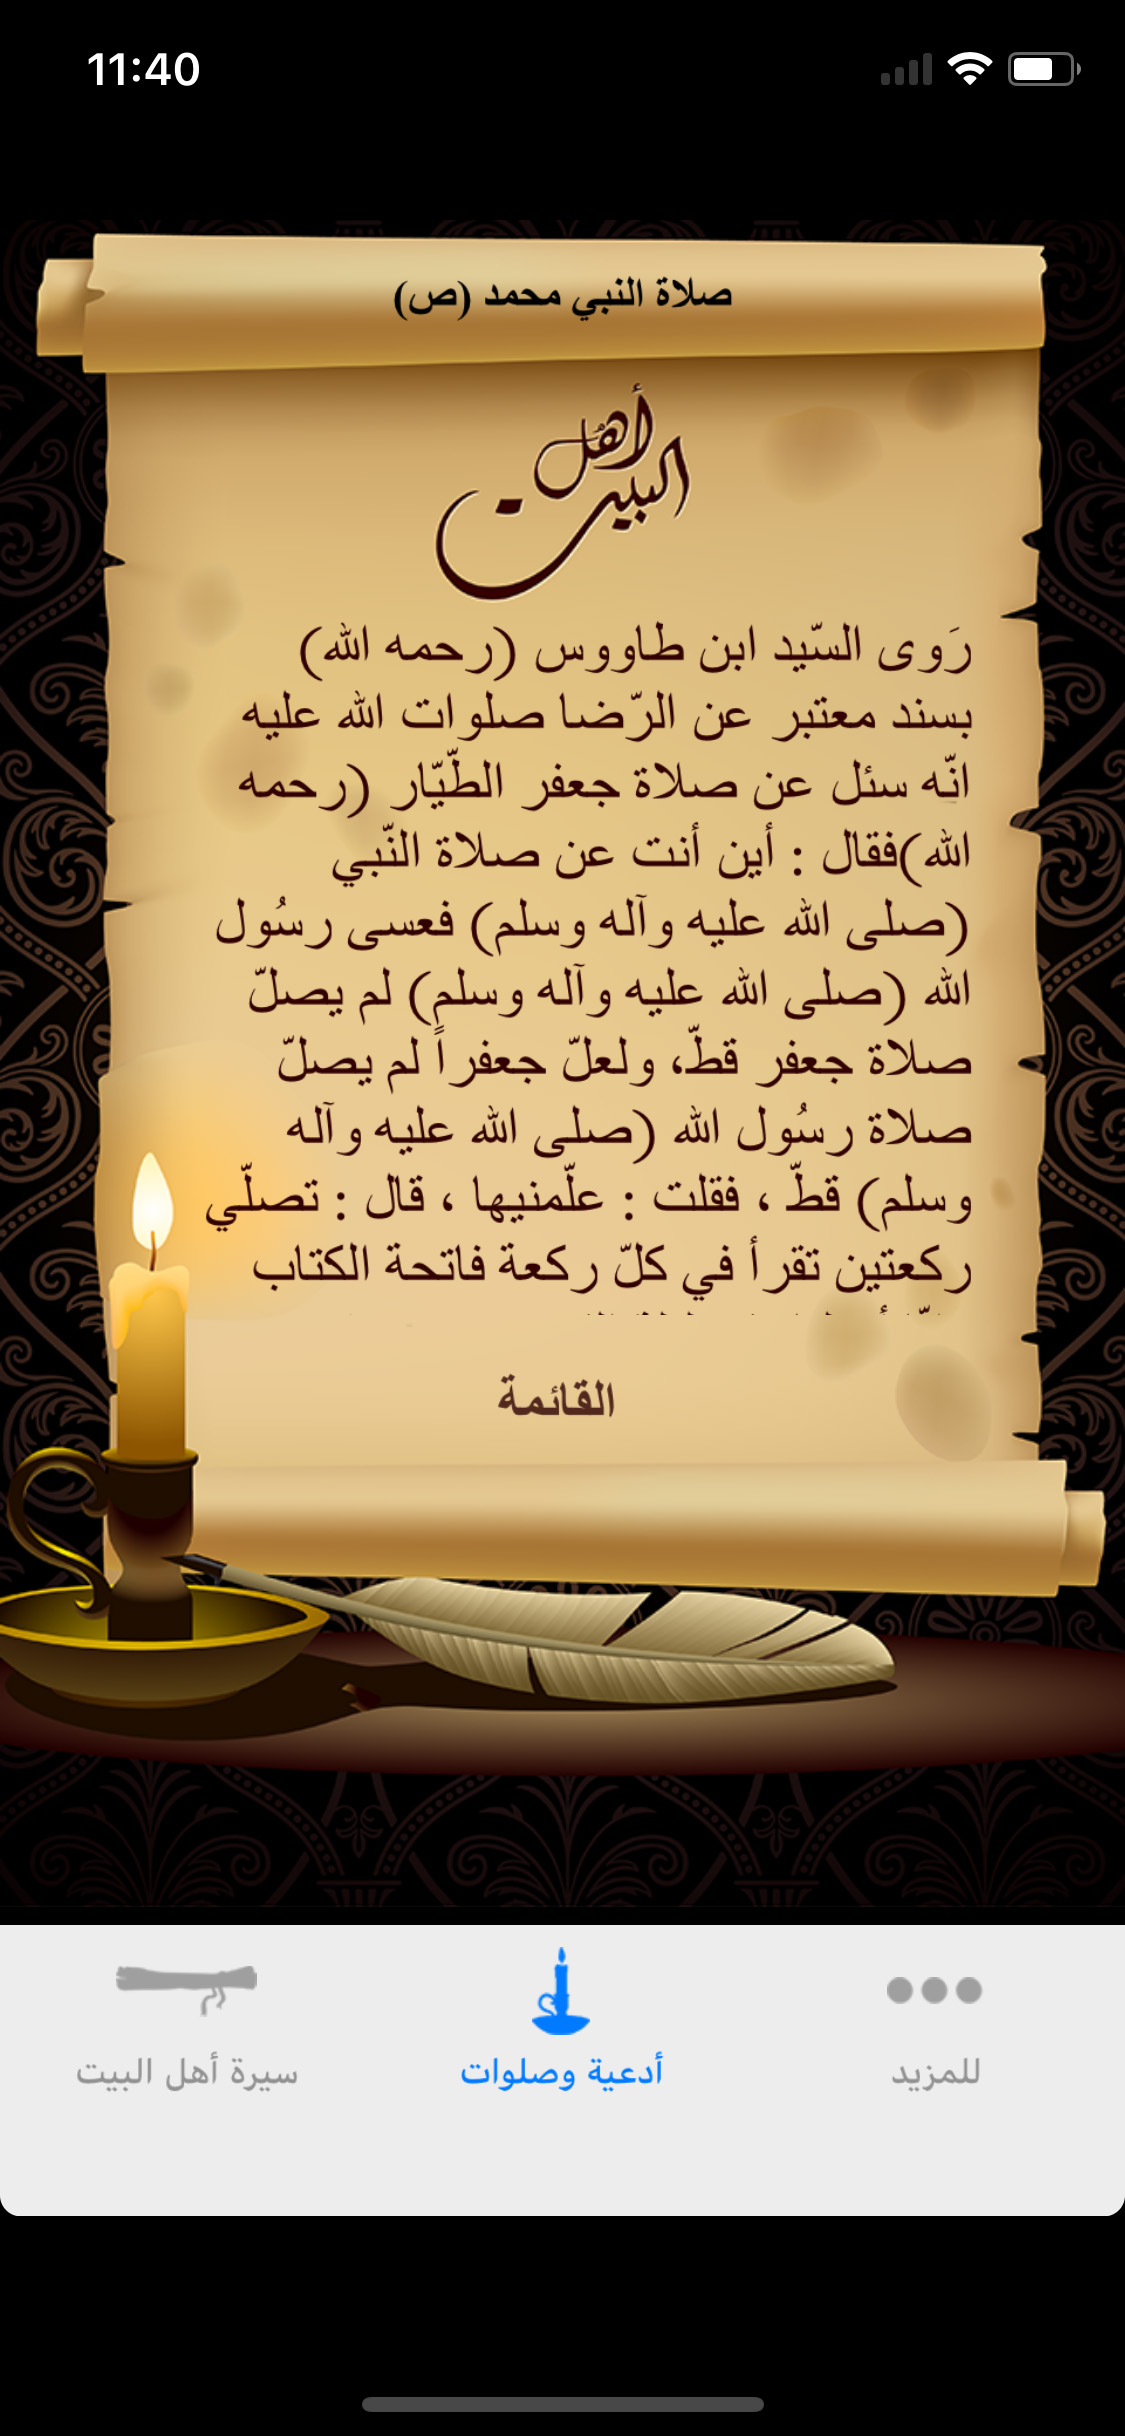 11:40
صلاة النبي محمد (ص)
أهل
البيت
رَوى السّيد ابن طاووس (رحمه الله)
بسند معتبر عن الرّضا صلوات الله عليه
انّه سئل عن صلاة جعفر الطّيّار (رحمه
الله)فقال : أين أنت عن صلاة النّبي
(صلى الله عليه وآله وسلم) فعسى رسُول
الله (صلى الله عليه وآله وسلم) لم يصلّ
صلاة جعفر قطّ، ولعلّ جعفراً لم يصلّ
صلاة رسُول الله (صلى الله عليه وآله
وسلم) قطّ ، فقلت : علّمنيها ، قال : تصلّي
ركعتين تقرأ في كلّ ركعة فاتحة الكتاب
القائمة
للمزيد
أدعية وصلوات
سيرة أهل البيت